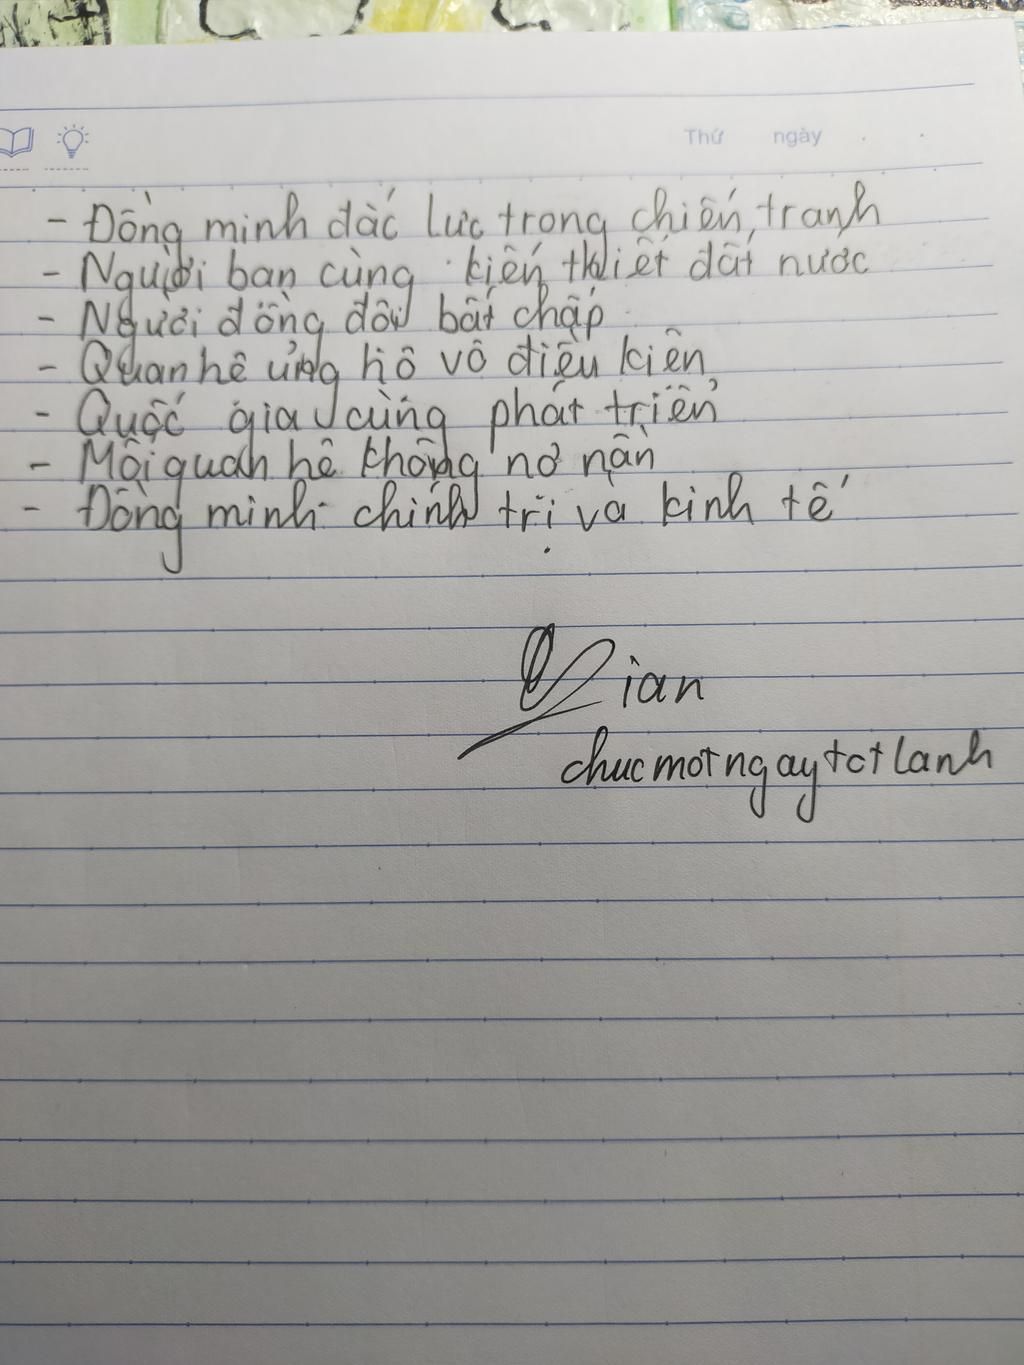 Thứ ngày
- Đồng minh đắc lực trong chiến tranh
- Người bạn cùng kiến thiết đất nước
- Người đồng đội bất chấp
- Quan hệ ủng hộ vô điều kiện
- Quốc gia cùng phát triển
- Mối quan hệ không nợ nần
- Đồng minh chính trị và kinh tế
ian
chucmotngaytotlanh